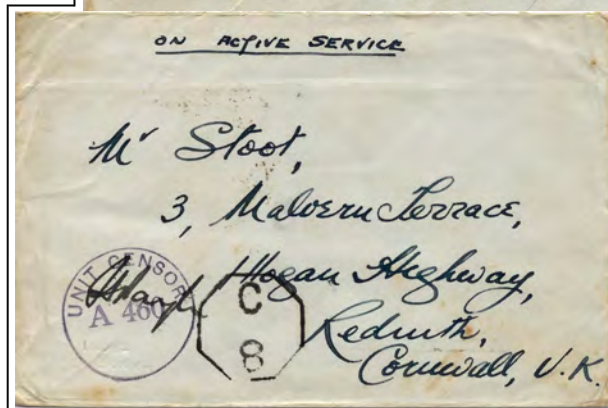 ON ACTIVE SERVICE
Mr Stoot,
3, Malvern Terrace,
Hogan Highway,
Redruth,
Cornwall, U.K.
UNIT CENSOR
A 460
C
8